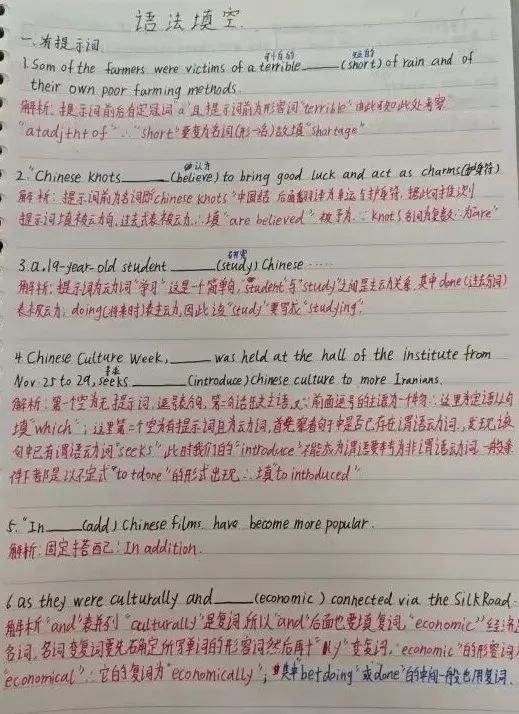 语法填空
一、有提示词
可怕的 短的
1. Som of the farmers were victims of a terrible ____ (short) of rain and of
their own poor farming methods.
解析: 提示词前后有定冠词"a"且提示词前为形容词"terrible"由此可知此处考察
"a+adj+n+of" ∴ "short"要变为名词(形→名)故填"shortage"
认为
2. "Chinese knots ____ (believe) to bring good luck and act as charms(护身符)
解析: 提示词前为名词即chinese knots"中国结 后面翻译为幸运与护身符,据此可推测
提示词填被动句,过去式表被动,∴填"are believed" 被予为. ∵knots名词为复数∴为are"
研究
3. a.19-year-old student ____ (study) Chinese ······
解析: 提示词为动词"学习"这是一个简单句,"student"与"study"之间是主动关系,其中done(过去分词)
表示被动; doing(将来时)表主动,因此该"study"要写成"studying".
4. Chinese Culture Week, ____ was held at the hall of the institute from
寻求
Nov. 25 to 29, seeks ____ (introduce) Chinese culture to more Iranians.
解析: 第一个空为无提示词,逗号表句,第一句话缺主语,又∵前面逗号的主语为一件物∴这里为定语从句
填"which"; 这里第二个空为有提示词且为动词,首先察看句子中是否已存在谓语动词,发现该
句中已有谓语动词"seeks",此时我们的"introduce"不能成为谓语要考为非谓语动词,一般条
件下都是以不定式"to+done"的形式出现,∴填"to introduced"
5. "In ____ (add) Chinese films have become more popular.
解析: 固定搭配: In addition.
6 as they were culturally and ____ (economic) connected via the SilkRoad
解析 "and"表并列 "culturally"是复词,所以"and"后面也要填复词,"economic"经济是
名词,名词变复词要先确定所写单词的形容词然后再+"ly"变复词,"economic"的形容词为
"economical" ∴它的复词为"economically"; 其中"be+doing"或done"的中间一般也用复词.